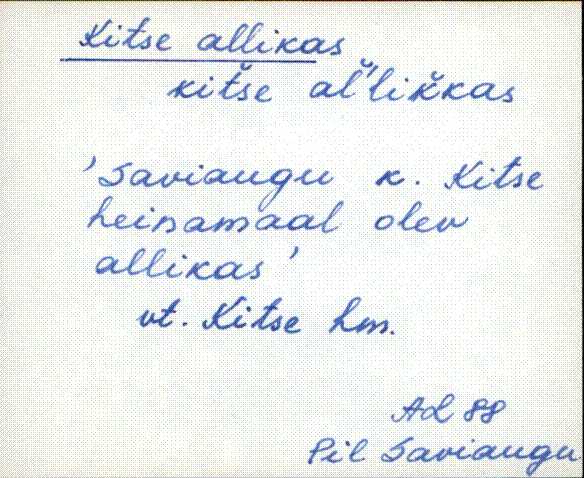 Kitse allikas
kiťše aľ'liǩkas
'Saviaugu k. Kitse
heinamaal olev
allikas'
vt. Kitse hm.
Ad 88
Pil Saviaugu